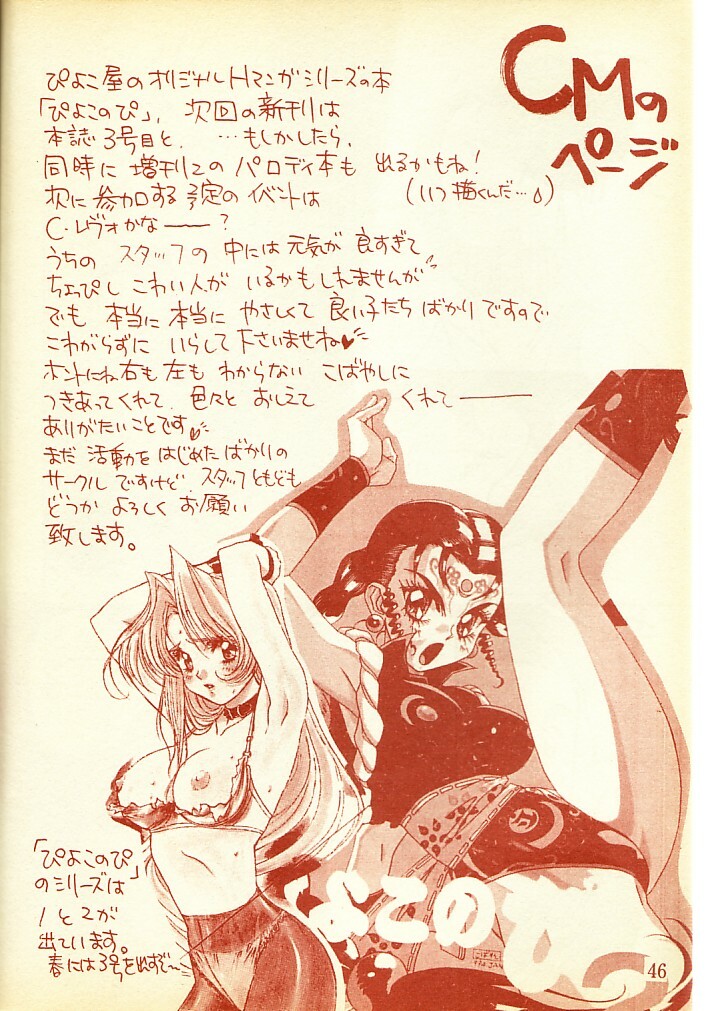 CMの
ページ
ぴよこ屋のオリジナルHマンガシリーズの本
「ぴよこのぴ」、次回の新刊は
本誌3号目と、…もしかしたら、
同時に増刊2のパロディ本も出るかもね!
(いつ描くんだ…)
次に参加する予定のイベントは
C・レヴォかな——?
うちのスタッフの中には元気が良すぎて
ちょっぴしこわい人がいるかもしれませんが
でも本当に本当にやさしくて良い子たちばかりですので
こわがらずにいらして下さいませね♥
ホントにね右も左もわからないこばやしに
つきあってくれて、色々とおしえてくれて——
ありがたいことです♥
まだ活動をはじめたばかりの
サークルですけど、スタッフともども
どうかよろしくお願い
致します。
「ぴよこのぴ」
のシリーズは
1と2が
出ています。
春には3号を出すぞ〜
ぴよこのぴ
46